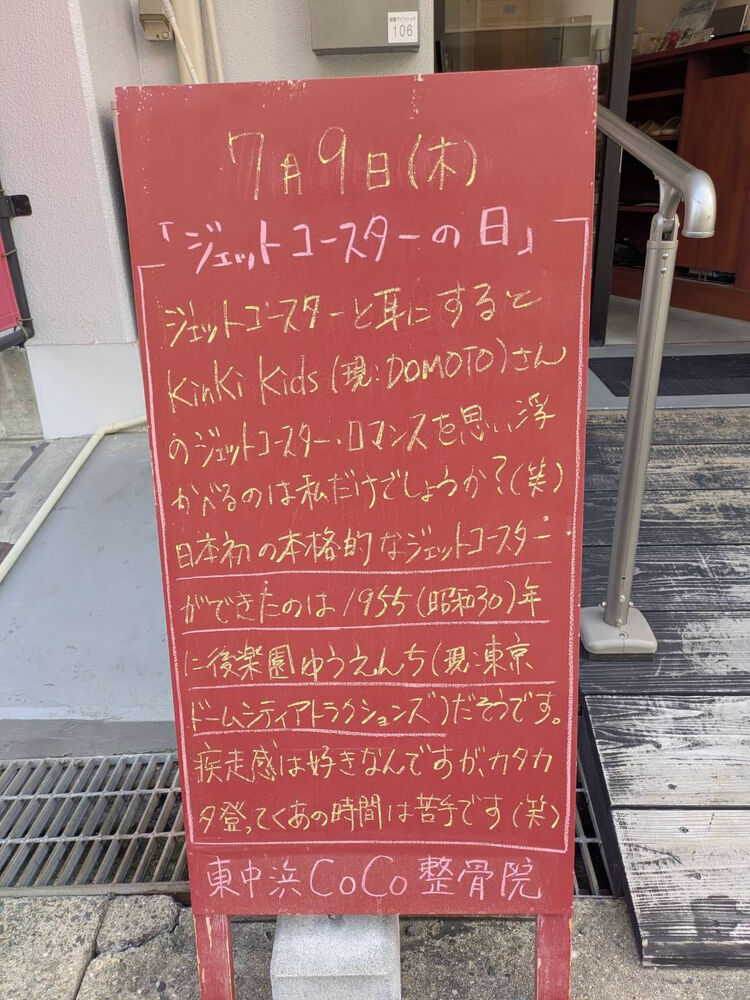 106
7月9日(木)
「ジェットコースターの日」
ジェットコースターと耳にすると
KinKi Kids(現:DOMOTO)さん
のジェットコースター・ロマンスを思い浮
かべるのは私だけでしょうか?(笑)
日本初の本格的なジェットコースター
ができたのは1955(昭和30)年
に後楽園ゆうえんち(現:東京
ドームシティアトラクションズ)だそうです。
疾走感は好きなんですが、カタカ
タ登ってくあの時間は苦手です(笑)
東中浜CoCo整骨院